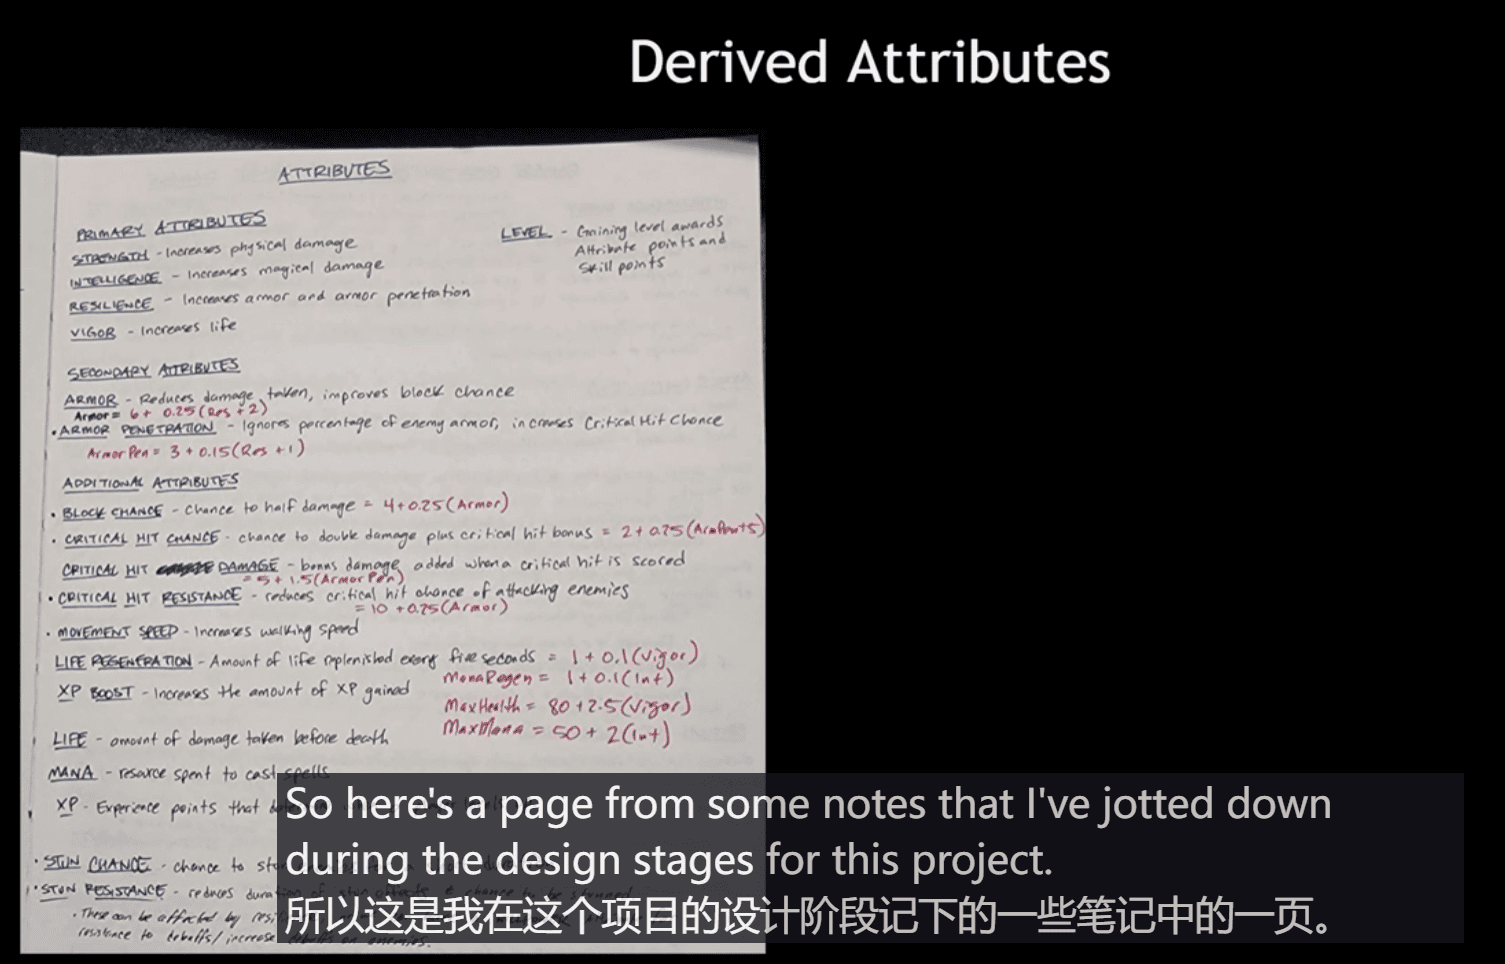 Derived Attributes
ATTRIBUTES
PRIMARY ATTRIBUTES
STRENGTH - Increases physical damage
INTELLIGENCE - Increases magical damage
RESILIENCE - Increases armor and armor penetration
VIGOR - Increases life
LEVEL - Gaining level awards
Attribute points and
Skill points
SECONDARY ATTRIBUTES
ARMOR - Reduces damage taken, improves block chance
Armor = 6 + 0.25 (Res + 2)
• ARMOR PENETRATION - Ignores percentage of enemy armor, increases Critical Hit Chance
ArmorPen = 3 + 0.15 (Res + 1)
ADDITIONAL ATTRIBUTES
• BLOCK CHANCE - Chance to half damage = 4 + 0.25 (Armor)
• CRITICAL HIT CHANCE - chance to double damage plus critical hit bonus = 2 + 0.25
CRITICAL HIT DAMAGE - bonus damage added when a critical hit is scored
= 5 + 1.5 (Armor Pen)
• CRITICAL HIT RESISTANCE - reduces critical hit chance of attacking enemies
= 10 + 0.25 (Armor)
• MOVEMENT SPEED - Increases walking speed
LIFE REGENERATION - Amount of life replenished every five seconds = 1 + 0.1 (Vigor)
ManaRegen = 1 + 0.1 (Int)
XP BOOST - Increases the amount of XP gained
MaxHealth = 80 + 2.5 (Vigor)
MaxMana = 50 + 2 (Int)
LIFE - amount of damage taken before death
MANA - resource spent to cast spells
XP - Experience points that
• STUN CHANCE - chance to
• STUN RESISTANCE - reduces
• These can be affected by
resistance to debuffs / increase debuffs on enemies.
So here's a page from some notes that I've jotted down
during the design stages for this project.
所以这是我在这个项目的设计阶段记下的一些笔记中的一页。